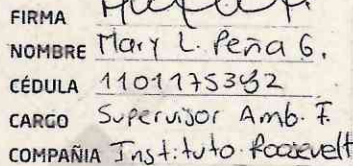 FIRMA
NOMBRE Mary L. Peña G.
CÉDULA
CARGO Supervisor Amb. F.
COMPAÑIA Instituto Roosevelt